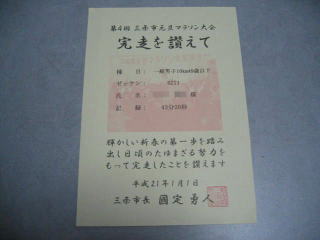 第4回 三条市元旦マラソン大会
完走を讃えて
種 目: 一般男子10km49歳以下
ゼッケン: 6271
氏 名: 様
記 録: 43分20秒
輝かしい新春の第一歩を踏み
出し日頃のたゆまざる努力を
もって完走したことを讃えます
平成21年1月1日
三条市長 國定勇人